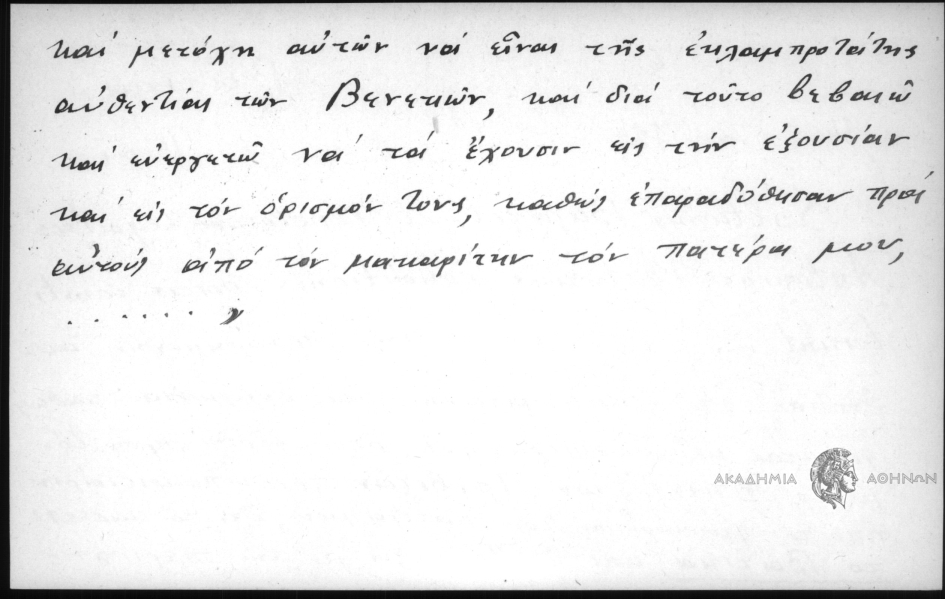 καί μετόχη αὐτῶν νά εἶναι τῆς ἐκλαμπροτάτης
αὐθεντίας τῶν Βενετιῶν, καί διά τοῦτο βεβαιῶ
καί εὐεργετῶ νά τά ἔχουσιν εἰς τήν ἐξουσίαν
καί εἰς τόν ὁρισμόν τους, καθώς ἐπαραδόθησαν πρός
αὐτούς ἀπό τόν μακαρίτην τόν πατέρα μου,
. . . . . . . »
ΑΚΑΔΗΜΙΑ ΑΘΗΝΩΝ